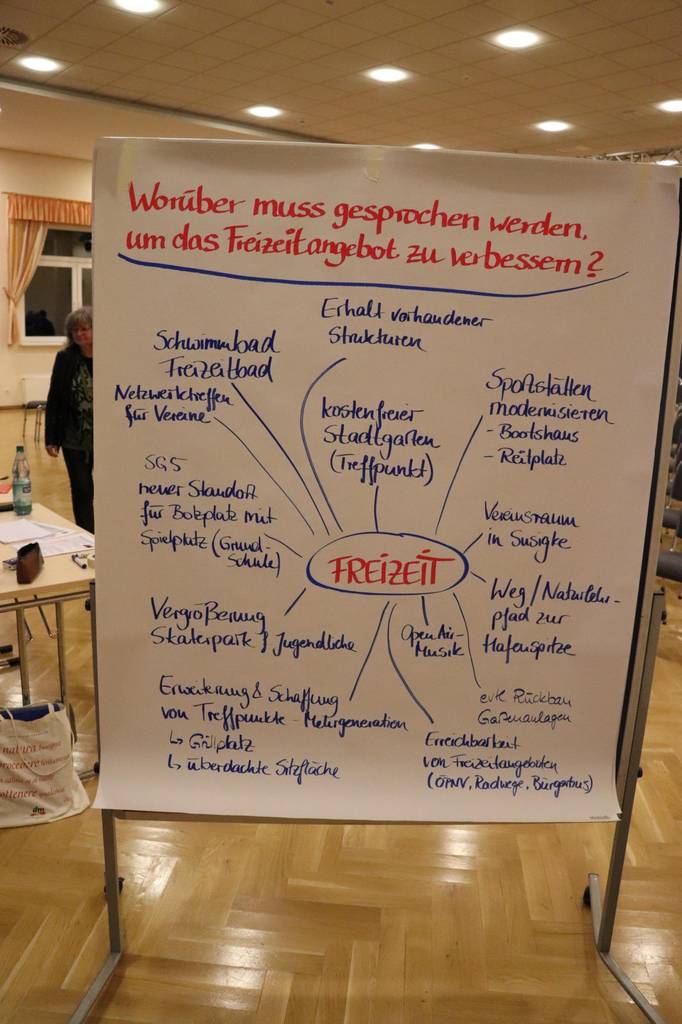 Worüber muss gesprochen werden,
um das Freizeitangebot zu verbessern?
Erhalt vorhandener
Strukturen
Schwimmbad
Freizeitbad
Netzwerktreffen
für Vereine
kostenfreier
Stadtgarten
(Treffpunkt)
Sportstätten
modernisieren
- Bootshaus
- Reitplatz
SG5
neuer Standort
für Bolzplatz mit
Spielplatz (Grund-
schule)
Vereinsraum
in Susigke
FREIZEIT
Weg/Naturlehr-
pfad zur
Hafenspitze
Vergrößerung
Skaterpark f Jugendliche
Open Air-
Musik
Erweiterung & Schaffung
von Treffpunkte - Mehrgeneration
↳ Grillplatz
↳ überdachte Sitzfläche
evtl. Rückbau
Gartenanlagen
Erreichbarkeit
von Freizeitangeboten
(ÖPNV, Radwege, Bürgerbus)
natura
procedere
ottenere
dm